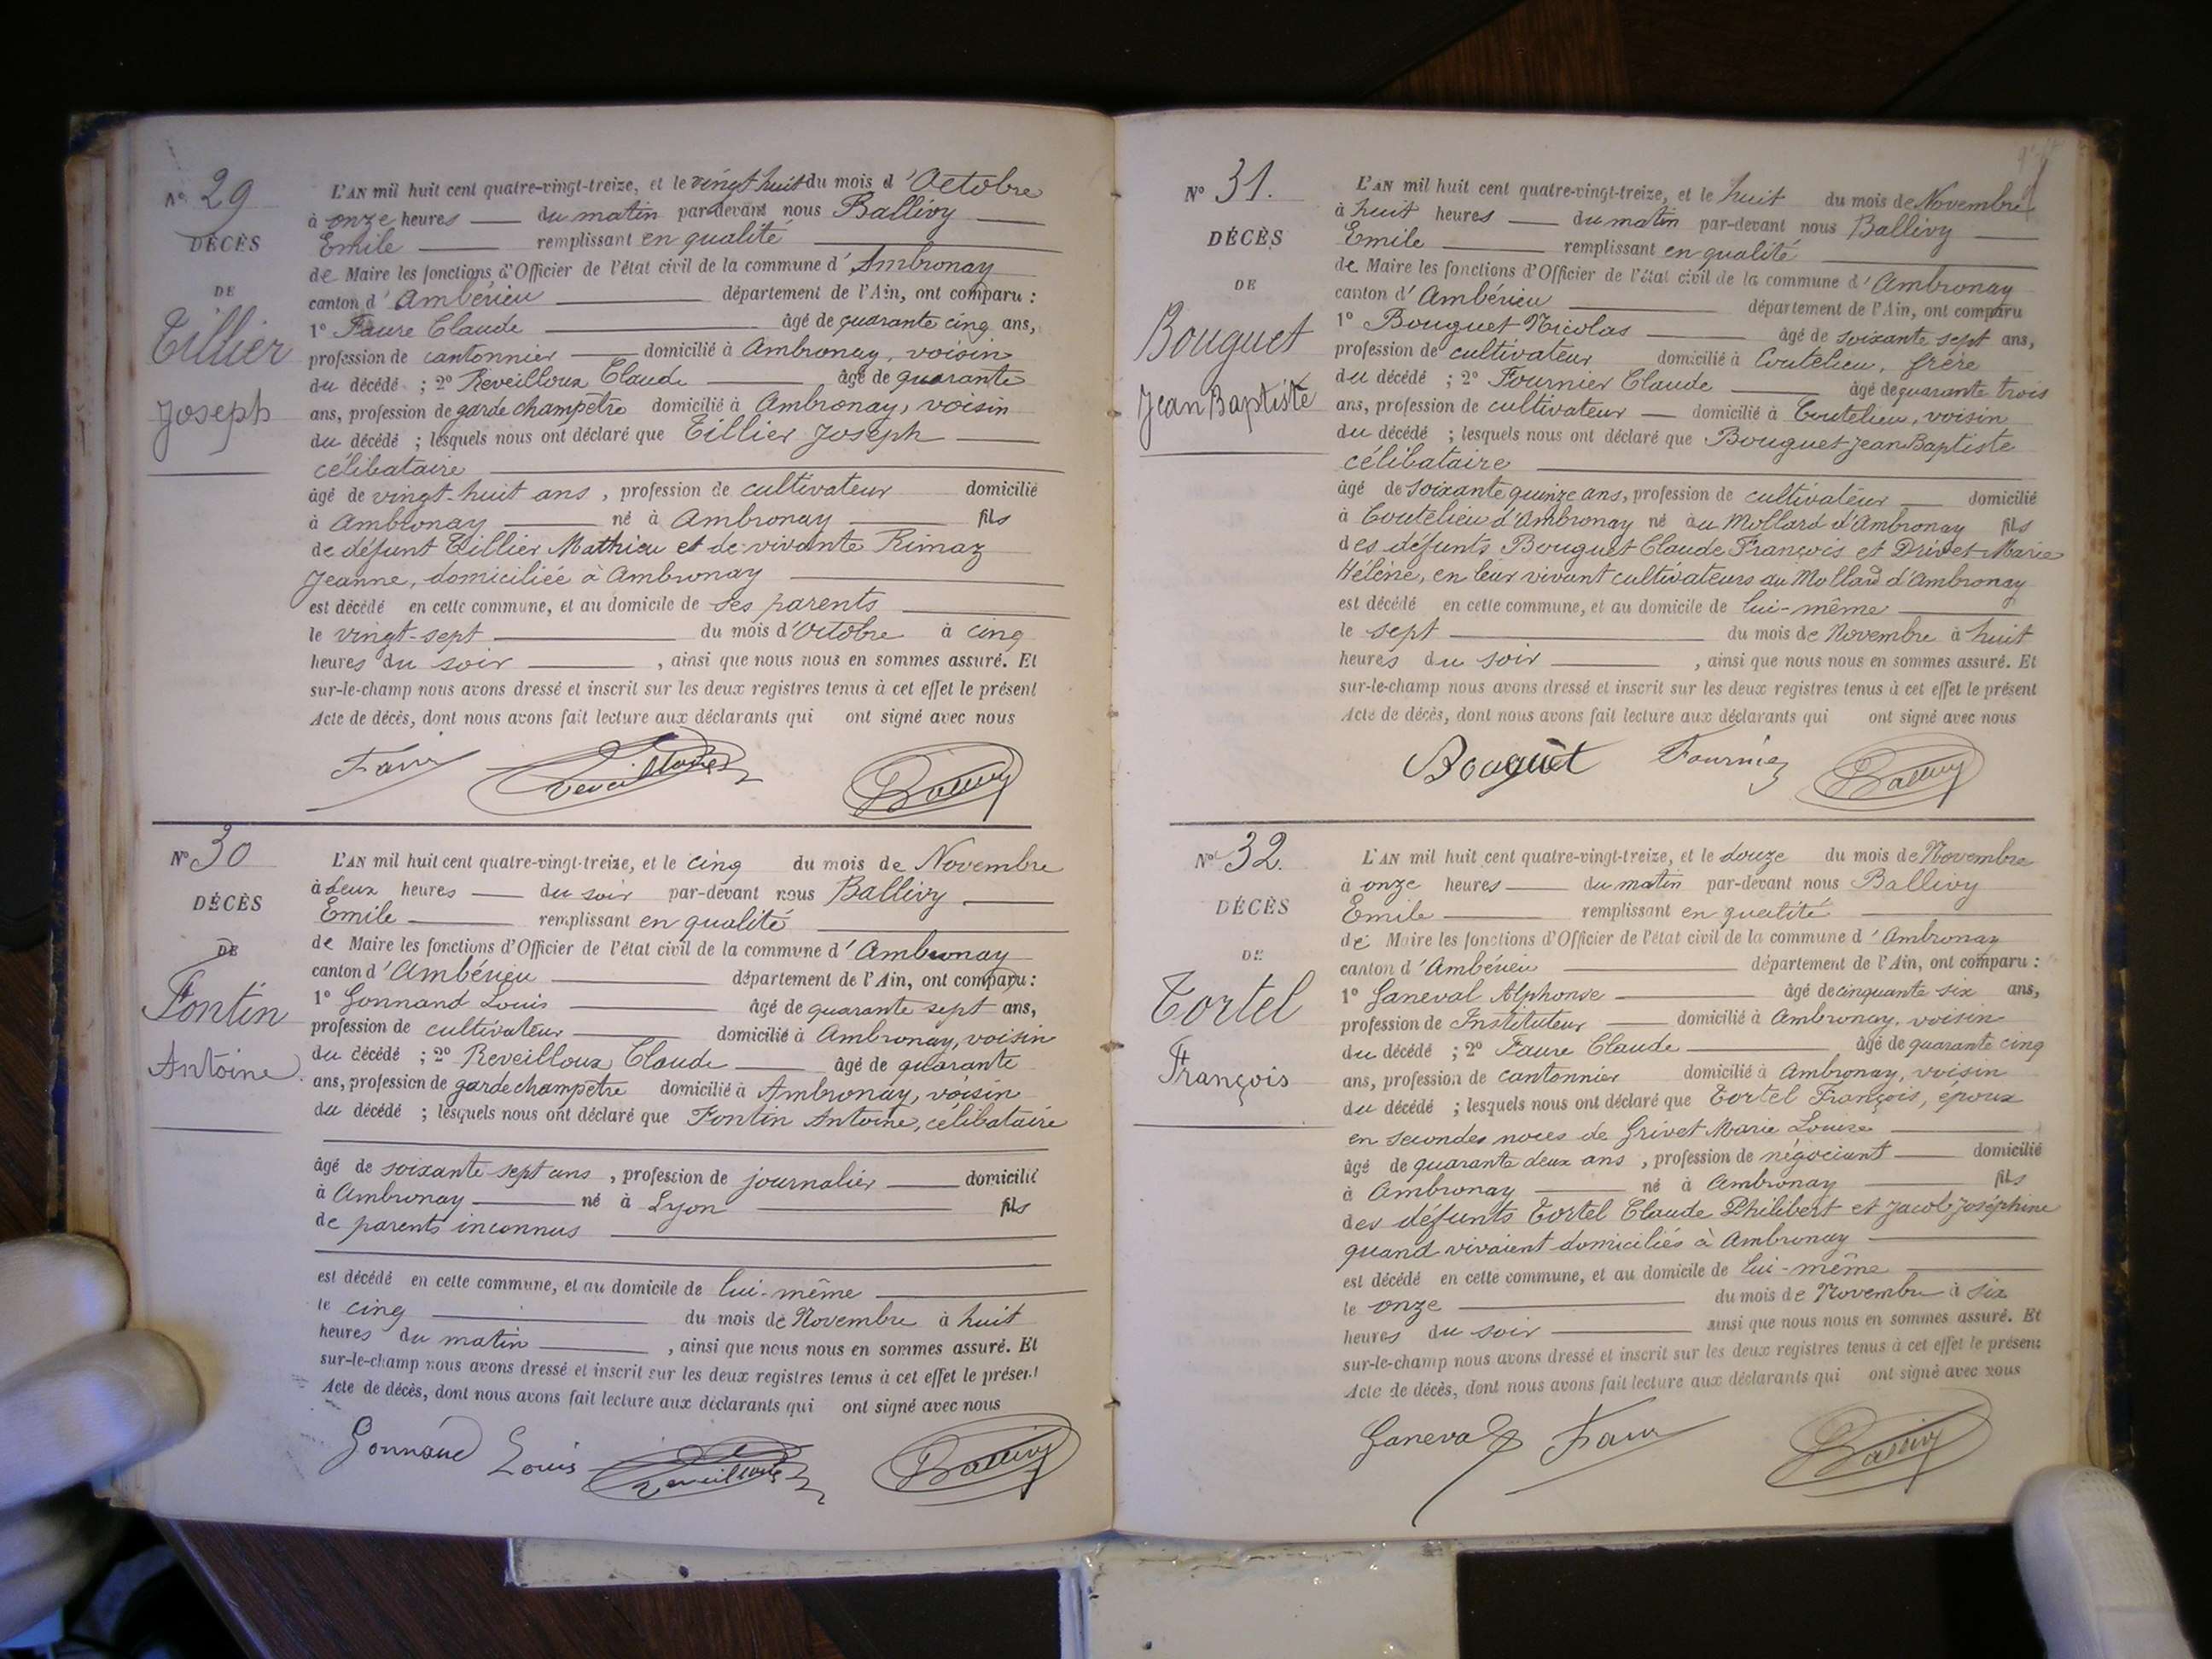 N° 29
DÉCÈS
DE
Tillier
Joseph
L'AN mil huit cent quatre-vingt-treize, et le vingt huit du mois d'Octobre
à onze heures du matin par-devant nous Ballivy
Emile remplissant en qualité
de Maire les fonctions d'Officier de l'état civil de la commune d'Ambronay
canton d'Ambérieu département de l'Ain, ont comparu :
1° Faure Claude âgé de quarante cinq ans,
profession de cantonnier domicilié à Ambronay, voisin
du décédé ; 2° Reveilloux Claude âgé de quarante
ans, profession de garde champêtre domicilié à Ambronay, voisin
du décédé ; lesquels nous ont déclaré que Tillier Joseph
célibataire
âgé de vingt huit ans, profession de cultivateur domicilié
à Ambronay né à Ambronay fils
de défunt Tillier Mathieu et de vivante Rimaz
Jeanne, domiciliée à Ambronay
est décédé en cette commune, et au domicile de ses parents
le vingt-sept du mois d'Octobre à cinq
heures du soir , ainsi que nous nous en sommes assuré. Et
sur-le-champ nous avons dressé et inscrit sur les deux registres tenus à cet effet le présent
Acte de décès, dont nous avons fait lecture aux déclarants qui ont signé avec nous
Faure Reveilloux Ballivy
N° 30
DÉCÈS
DE
Fontin
Antoine
L'AN mil huit cent quatre-vingt-treize, et le cinq du mois de Novembre
à deux heures du soir par-devant nous Ballivy
Emile remplissant en qualité
de Maire les fonctions d'Officier de l'état civil de la commune d'Ambronay
canton d'Ambérieu département de l'Ain, ont comparu :
1° Gonnand Louis âgé de quarante sept ans,
profession de cultivateur domicilié à Ambronay, voisin
du décédé ; 2° Reveilloux Claude âgé de quarante
ans, profession de garde champêtre domicilié à Ambronay, voisin
du décédé ; lesquels nous ont déclaré que Fontin Antoine, célibataire
âgé de soixante sept ans, profession de journalier domicilié
à Ambronay né à Lyon fils
de parents inconnus
est décédé en cette commune, et au domicile de lui-même
le cinq du mois de Novembre à huit
heures du matin , ainsi que nous nous en sommes assuré. Et
sur-le-champ nous avons dressé et inscrit sur les deux registres tenus à cet effet le présent
Acte de décès, dont nous avons fait lecture aux déclarants qui ont signé avec nous
Gonnand Louis Reveilloux Ballivy
N° 31.
DÉCÈS
DE
Bouguet
Jean Baptiste
L'AN mil huit cent quatre-vingt-treize, et le huit du mois de Novembre
à huit heures du matin par-devant nous Ballivy
Emile remplissant en qualité
de Maire les fonctions d'Officier de l'état civil de la commune d'Ambronay
canton d'Ambérieu département de l'Ain, ont comparu
1° Bouguet Nicolas âgé de soixante sept ans,
profession de cultivateur domicilié à Coutelieu, frère
du décédé ; 2° Fournier Claude âgé de quarante trois
ans, profession de cultivateur domicilié à Coutelieu, voisin
du décédé ; lesquels nous ont déclaré que Bouguet Jean Baptiste
célibataire
âgé de soixante quinze ans, profession de cultivateur domicilié
à Coutelieu d'Ambronay né au Mollard d'Ambronay fils
des défunts Bouguet Claude François et Drivet Marie
Hélène, en leur vivant cultivateurs au Mollard d'Ambronay
est décédé en cette commune, et au domicile de lui-même
le sept du mois de Novembre à huit
heures du soir , ainsi que nous nous en sommes assuré. Et
sur-le-champ nous avons dressé et inscrit sur les deux registres tenus à cet effet le présent
Acte de décès, dont nous avons fait lecture aux déclarants qui ont signé avec nous
Bouguet Fournier Ballivy
N° 32.
DÉCÈS
DE
Tortel
François
L'AN mil huit cent quatre-vingt-treize, et le douze du mois de Novembre
à onze heures du matin par-devant nous Ballivy
Emile remplissant en qualité
de Maire les fonctions d'Officier de l'état civil de la commune d'Ambronay
canton d'Ambérieu département de l'Ain, ont comparu :
1° Ganeval Alphonse âgé de cinquante six ans,
profession de Instituteur domicilié à Ambronay, voisin
du décédé ; 2° Faure Claude âgé de quarante cinq
ans, profession de cantonnier domicilié à Ambronay, voisin
du décédé ; lesquels nous ont déclaré que Tortel François, époux
en secondes noces de Grivet Marie Louise
âgé de quarante deux ans, profession de négociant domicilié
à Ambronay né à Ambronay fils
des défunts Tortel Claude Philibert et Jacob Joséphine
quand vivaient domiciliés à Ambronay
est décédé en cette commune, et au domicile de lui-même
le onze du mois de Novembre à six
heures du soir ainsi que nous nous en sommes assuré. Et
sur-le-champ nous avons dressé et inscrit sur les deux registres tenus à cet effet le présent
Acte de décès, dont nous avons fait lecture aux déclarants qui ont signé avec nous
Ganeval Faure Ballivy